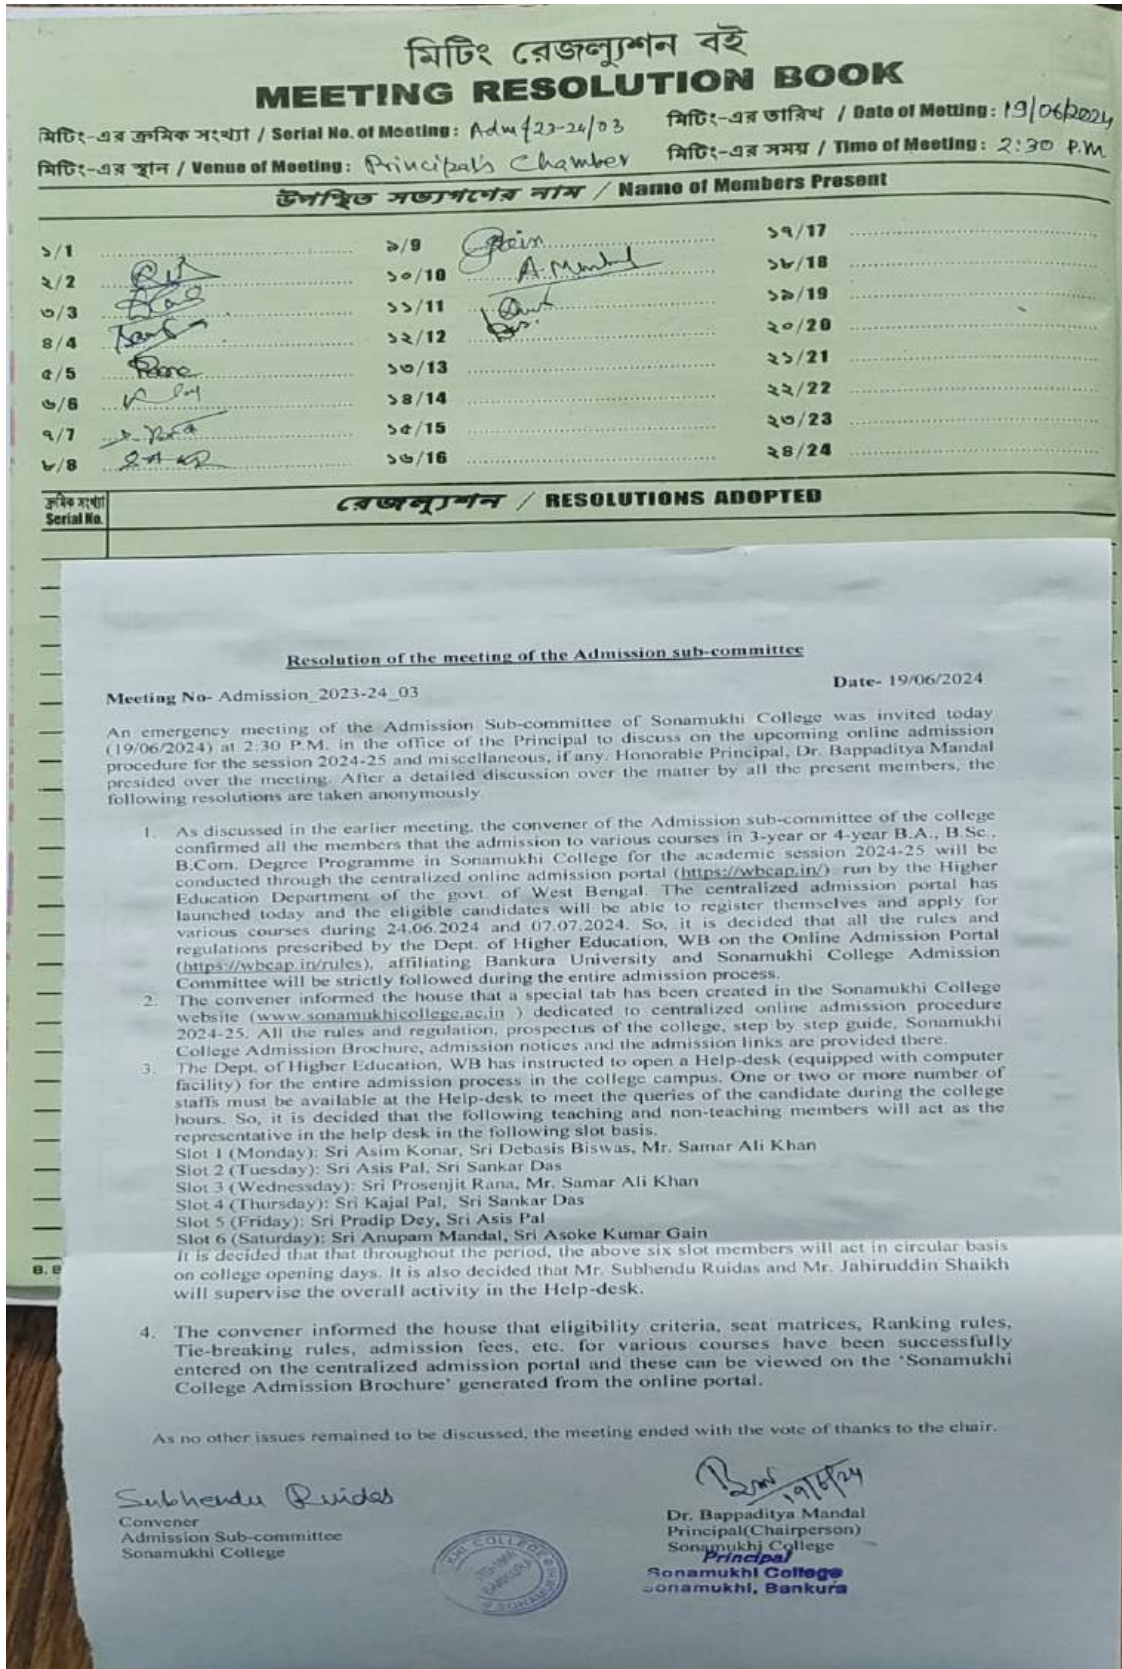 মিটিং রেজল্যুশন বই
MEETING RESOLUTION BOOK
মিটিং-এর ক্রমিক সংখ্যা / Serial No. of Meeting: Adm/23-24/03
মিটিং-এর তারিখ / Date of Metting: 19/06/2024
মিটিং-এর স্থান / Venue of Meeting: Principal's Chamber
মিটিং-এর সময় / Time of Meeting: 2:30 P.M
উপস্থিত সভ্যগণের নাম / Name of Members Present
১/1
২/2
৩/3
৪/4
৫/5 Rana
৬/6
৭/7
৮/8
৯/9 Gain
১০/10 A. Mandal
১১/11
১২/12
১৩/13
১৪/14
১৫/15
১৬/16
১৭/17
১৮/18
১৯/19
২০/20
২১/21
২২/22
২৩/23
২৪/24
ক্রমিক সংখ্যা
Serial No.
রেজল্যুশন / RESOLUTIONS ADOPTED
Resolution of the meeting of the Admission sub-committee
Meeting No- Admission_2023-24_03
Date- 19/06/2024
An emergency meeting of the Admission Sub-committee of Sonamukhi College was invited today
(19/06/2024) at 2:30 P.M. in the office of the Principal to discuss on the upcoming online admission
procedure for the session 2024-25 and miscellaneous, if any. Honorable Principal, Dr. Bappaditya Mandal
presided over the meeting. After a detailed discussion over the matter by all the present members, the
following resolutions are taken anonymously.
1. As discussed in the earlier meeting, the convener of the Admission sub-committee of the college
confirmed all the members that the admission to various courses in 3-year or 4-year B.A., B.Sc.,
B.Com. Degree Programme in Sonamukhi College for the academic session 2024-25 will be
conducted through the centralized online admission portal (https://wbcap.in/) run by the Higher
Education Department of the govt. of West Bengal. The centralized admission portal has
launched today and the eligible candidates will be able to register themselves and apply for
various courses during 24.06.2024 and 07.07.2024. So, it is decided that all the rules and
regulations prescribed by the Dept. of Higher Education, WB on the Online Admission Portal
(https://wbcap.in/rules), affiliating Bankura University and Sonamukhi College Admission
Committee will be strictly followed during the entire admission process.
2. The convener informed the house that a special tab has been created in the Sonamukhi College
website (www.sonamukhicollege.ac.in ) dedicated to centralized online admission procedure
2024-25. All the rules and regulation, prospectus of the college, step by step guide, Sonamukhi
College Admission Brochure, admission notices and the admission links are provided there.
3. The Dept. of Higher Education, WB has instructed to open a Help-desk (equipped with computer
facility) for the entire admission process in the college campus. One or two or more number of
staffs must be available at the Help-desk to meet the queries of the candidate during the college
hours. So, it is decided that the following teaching and non-teaching members will act as the
representative in the help desk in the following slot basis.
Slot 1 (Monday): Sri Asim Konar, Sri Debasis Biswas, Mr. Samar Ali Khan
Slot 2 (Tuesday): Sri Asis Pal, Sri Sankar Das
Slot 3 (Wednessday): Sri Prosenjit Rana, Mr. Samar Ali Khan
Slot 4 (Thursday): Sri Kajal Pal, Sri Sankar Das
Slot 5 (Friday): Sri Pradip Dey, Sri Asis Pal
Slot 6 (Saturday): Sri Anupam Mandal, Sri Asoke Kumar Gain
It is decided that that throughout the period, the above six slot members will act in circular basis
on college opening days. It is also decided that Mr. Subhendu Ruidas and Mr. Jahiruddin Shaikh
will supervise the overall activity in the Help-desk.
4. The convener informed the house that eligibility criteria, seat matrices, Ranking rules,
Tie-breaking rules, admission fees, etc. for various courses have been successfully
entered on the centralized admission portal and these can be viewed on the ‘Sonamukhi
College Admission Brochure’ generated from the online portal.
As no other issues remained to be discussed, the meeting ended with the vote of thanks to the chair.
Subhendu Ruidas
Convener
Admission Sub-committee
Sonamukhi College
19/6/24
Dr. Bappaditya Mandal
Principal(Chairperson)
Sonamukhi College
Principal
Sonamukhi College
Sonamukhi, Bankura